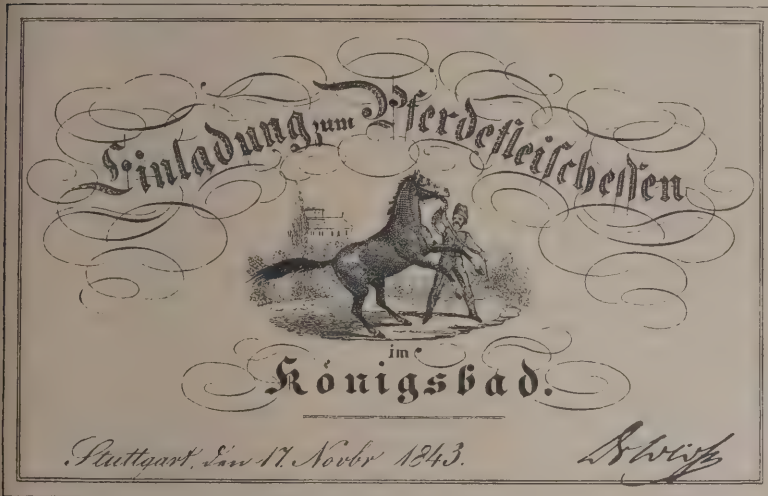 Einladung zum Pferdefleischessen
im
Königsbad.
Stuttgart, den 17. Novbr 1843.